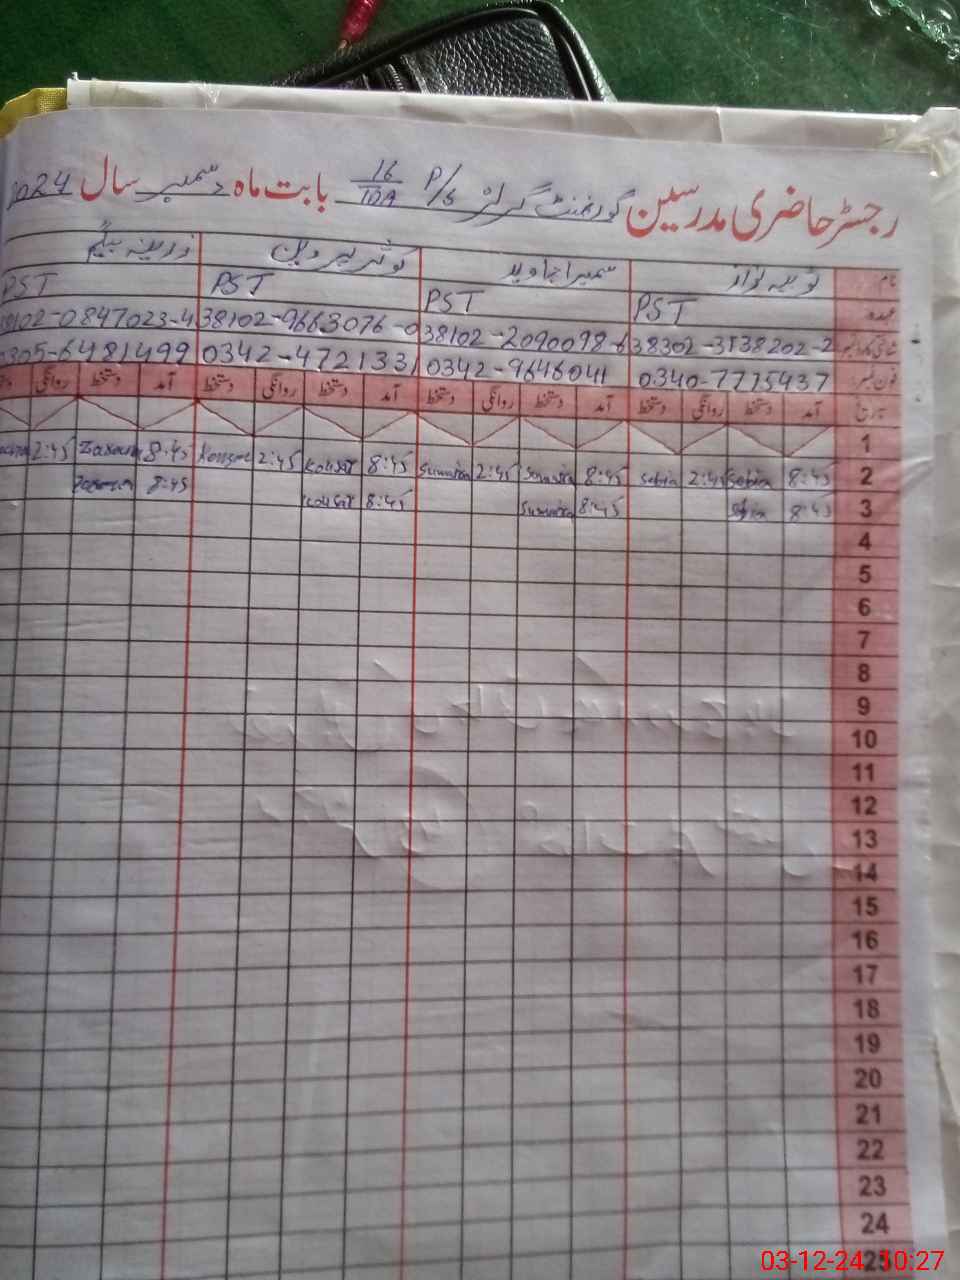 رجسٹر حاضری مدرسین گورنمنٹ گرلز P/S 16/10A بابت ماہ دسمبر سال 2024
نام سمیرا جاوید کوثر پروین زرینہ بیگم
عہدہ PST PST PST PST
38302-3538202-2 38102-2090098-6 38102-9663076-0 38102-0847023-4
فون نمبر 0340-7775937 0342-9646041 0342-4721331 0305-6481499
تاریخ آمد دستخط روانگی دستخط آمد دستخط روانگی دستخط آمد دستخط روانگی دستخط آمد دستخط روانگی
1
2 8:45 Sobia 2:45 Sobia 8:45 Sumaira 2:45 Sumaira 8:45 Kousar 2:45 Kousar 8:45 2:45
3 8:45 Sobia 8:45 Sumaira 8:45 Kousar 8:45
4
5
6
7
8
9
10
11
12
13
14
15
16
17
18
19
20
21
22
23
24
25
03-12-24 10:27